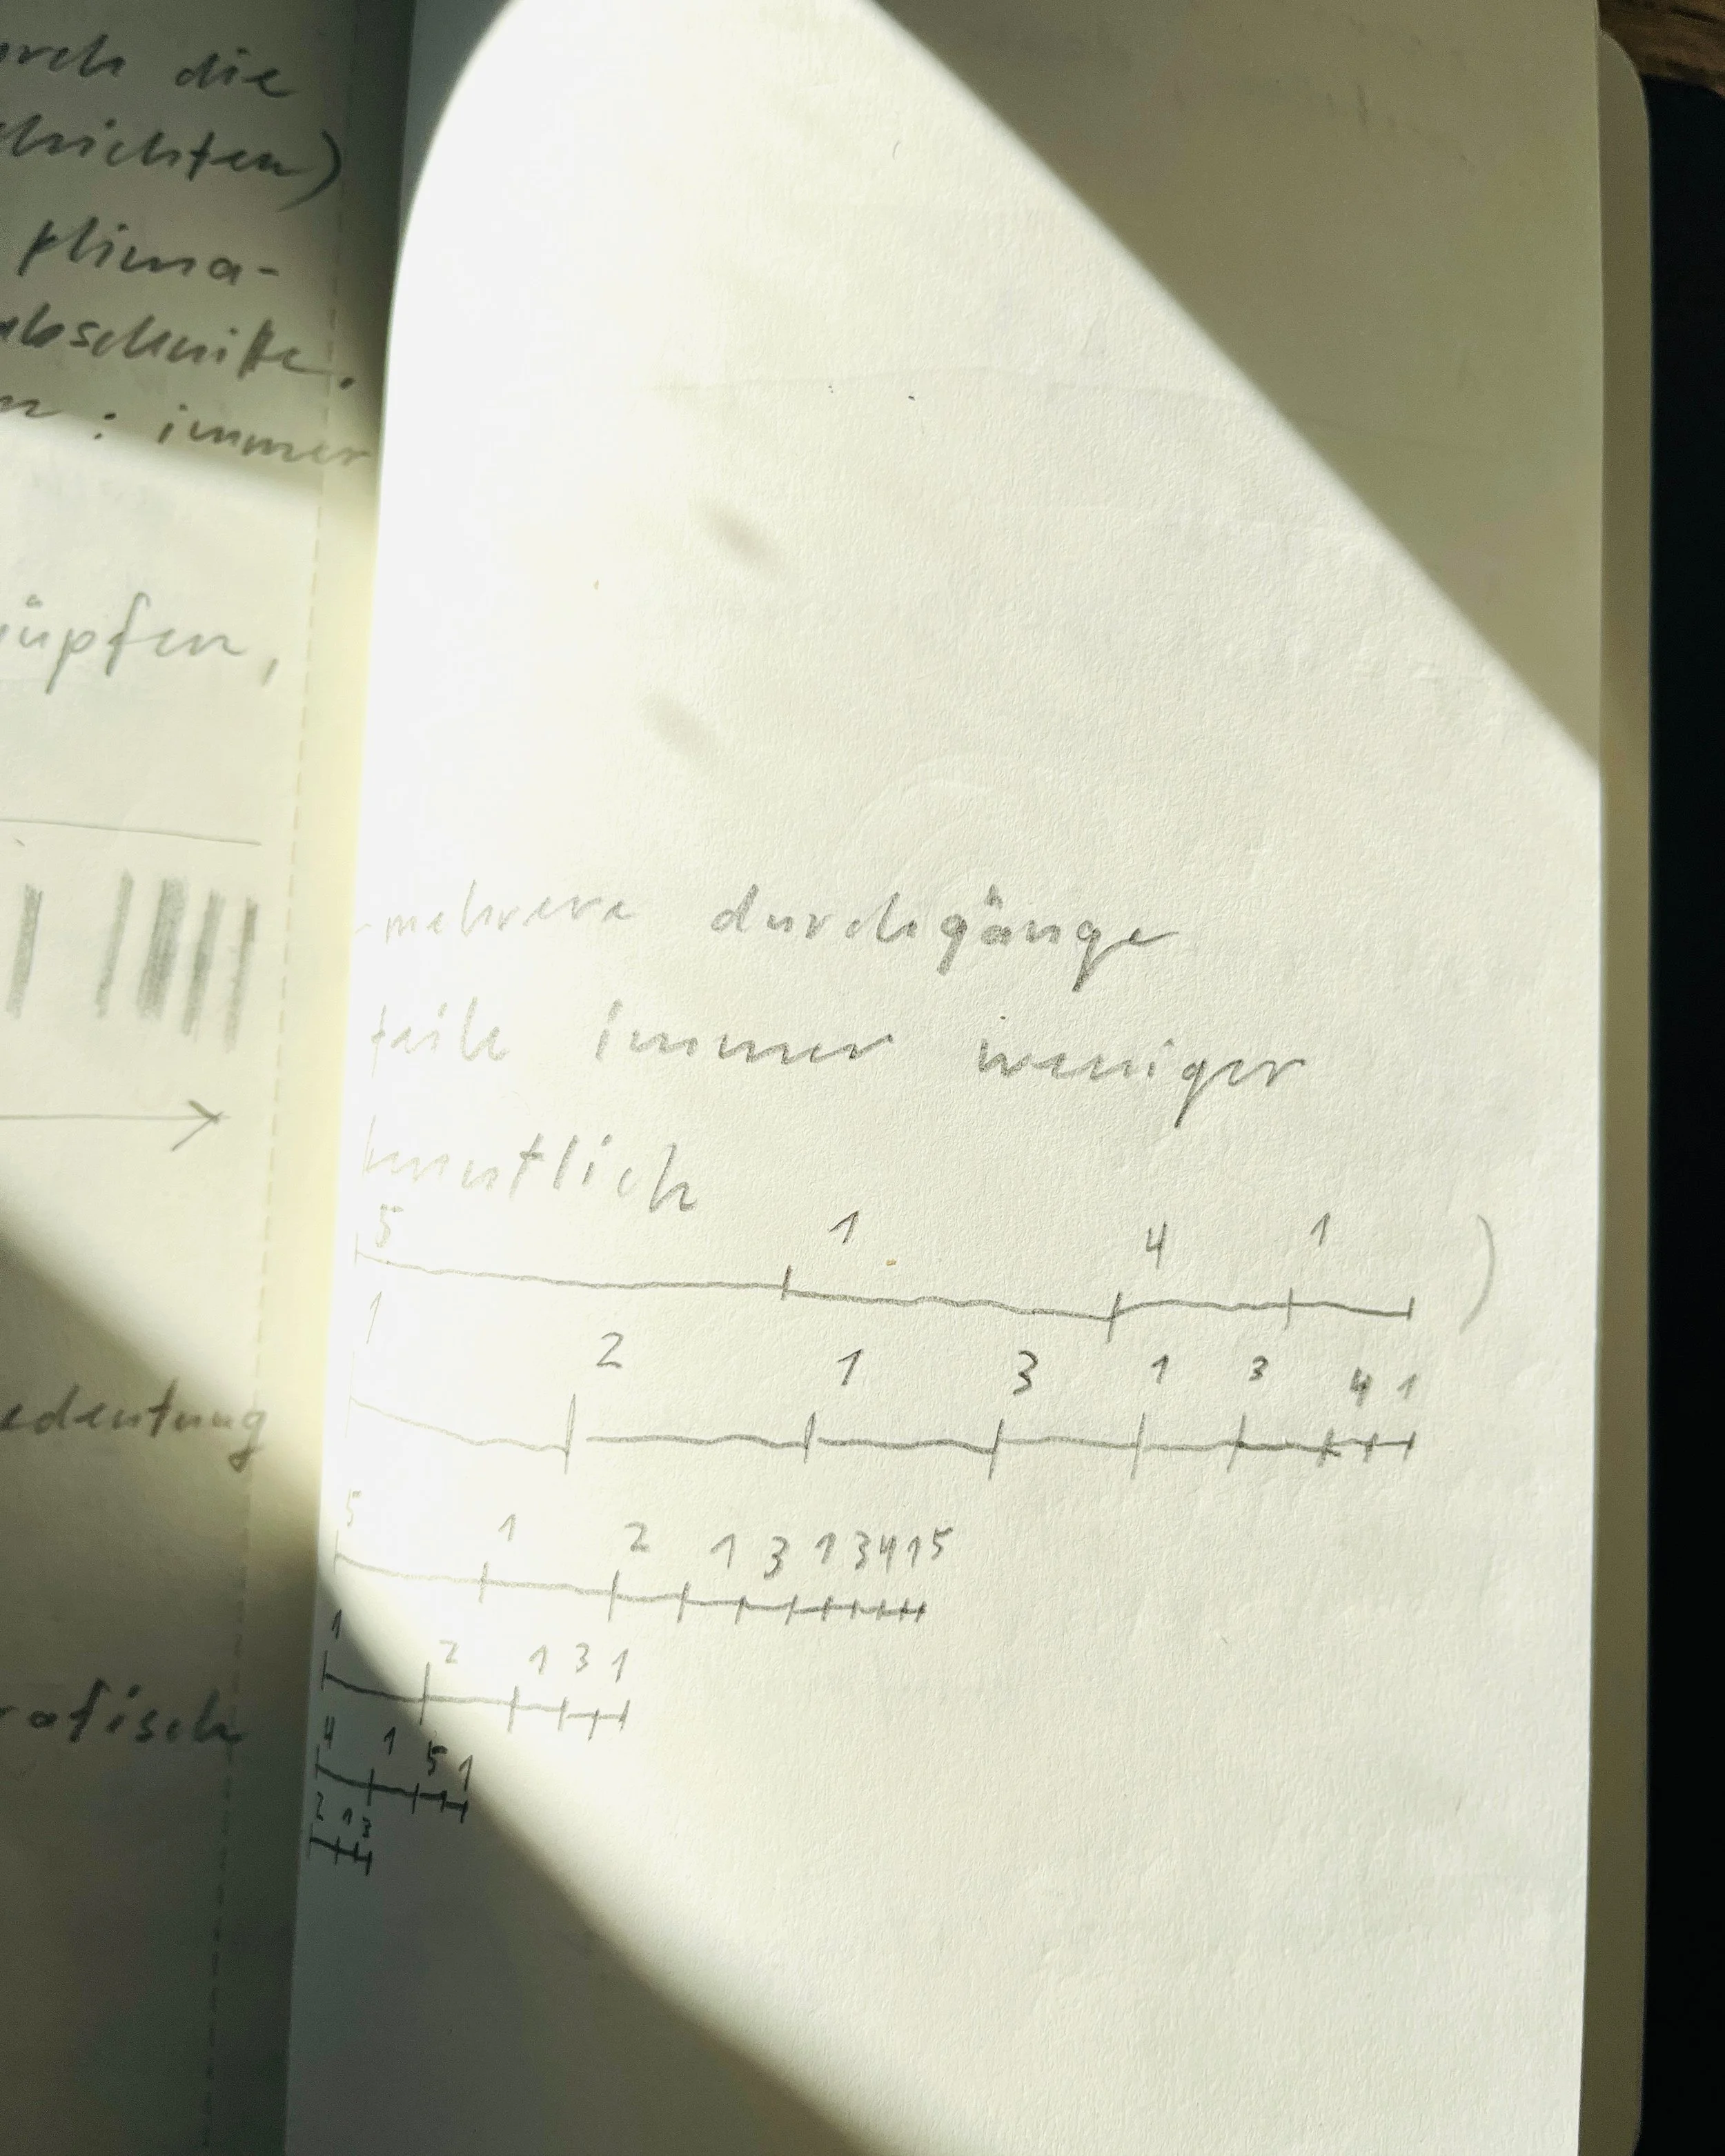 urch die
chichten)
klima-
abschnitte.
n : immer
üpfen,
edeutung
rafisch
-mehrere durchgänge
teile immer weniger
kenntlich
5 1 4 1 )
1 2 1 3 1 3 4 1
5 1 2 1 3 1 3 4 1 5
1 2 1 3 1
4 1 5 1
2 1 3